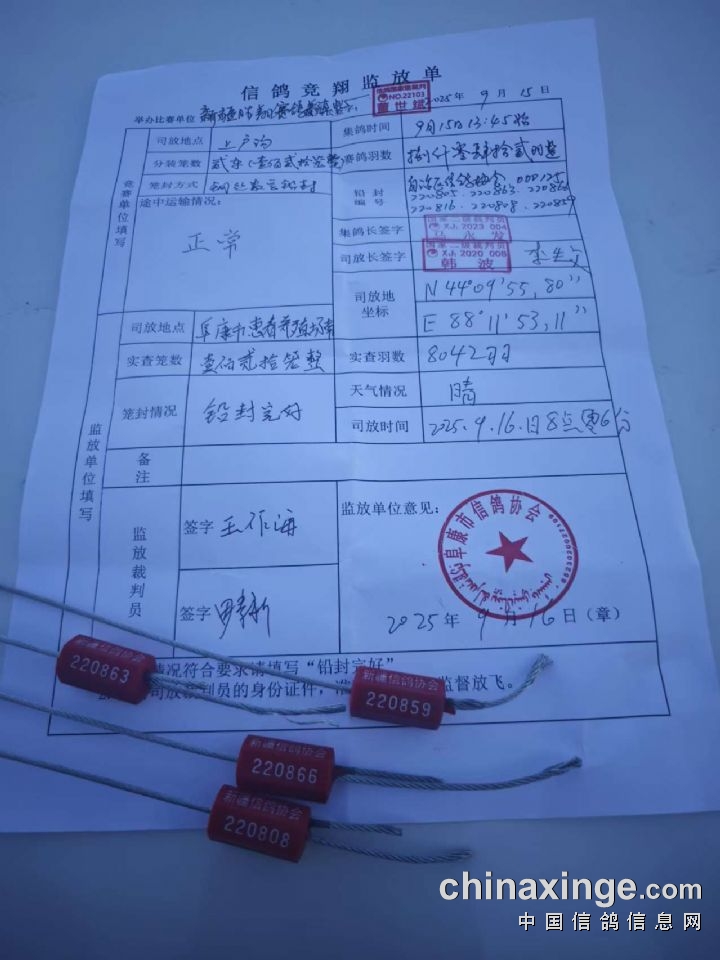 信鸽竞翔监放单
举办比赛单位
信鸽国家级裁判
NO.22103
董世斌
2025年9月15日
竞赛单位填写
司放地点 上户沟
集鸽时间 9月15日13:45始
分装笼数 贰车(壹佰贰拾笼整)
赛鸽羽数 捌仟零肆拾贰羽整
笼封方式
铅封编号
220805. 220863. 220866
220816. 220808. 220859
途中运输情况:
正常
集鸽长签字
国家二级裁判员
XJ. 2023 004
马永发
司放长签字
国家二级裁判员
XJ. 2020 008
韩波
司放地坐标
N 44°09'55,80"
E 88°11'53,11"
监放单位填写
司放地点
实查笼数 壹佰贰拾笼整
实查羽数 8042羽
笼封情况 铅封完好
天气情况 晴
司放时间 2025.9.16.日8点零6分
备注
监放裁判员
签字 王作海
签字
监放单位意见:
阜康市信鸽协会
2025年9月16日(章)
情况符合要求请填写“铅封完好”
司放裁判员的身份证件,准
监督放飞。
新疆信鸽协会
220863
新疆信鸽协会
220859
新疆信鸽协会
220866
新疆信鸽协会
220808
chinaxinge.com
中国信鸽信息网